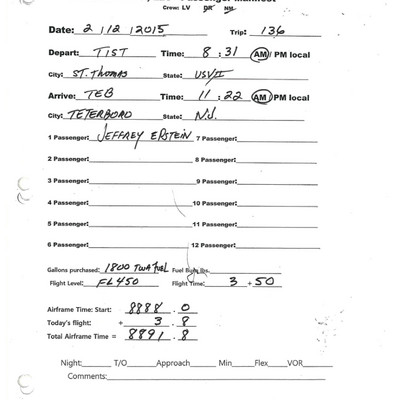 Crew: LV DR NM
Date: 2 | 12 | 2015 Trip: 136
Depart: TIST Time: 8 : 31 AM / PM local
City: ST. THOMAS State: USVI
Arrive: TEB Time: 11 : 22 AM / PM local
City: TETERBORO State: N.J.
1 Passenger: JEFFREY EPSTEIN 7 Passenger:
2 Passenger: 8 Passenger:
3 Passenger: 9 Passenger:
4 Passenger: 10 Passenger:
5 Passenger: 11 Passenger:
6 Passenger: 12 Passenger:
Gallons purchased: 1800 TWA FUEL Fuel Burn lbs.
Flight Level: FL450 Flight Time: 3 + 50
Airframe Time: Start: 8888 . 0
Today's flight: + 3 . 8
Total Airframe Time = 8891 . 8
Night: T/O Approach Min Flex VOR
Comments: